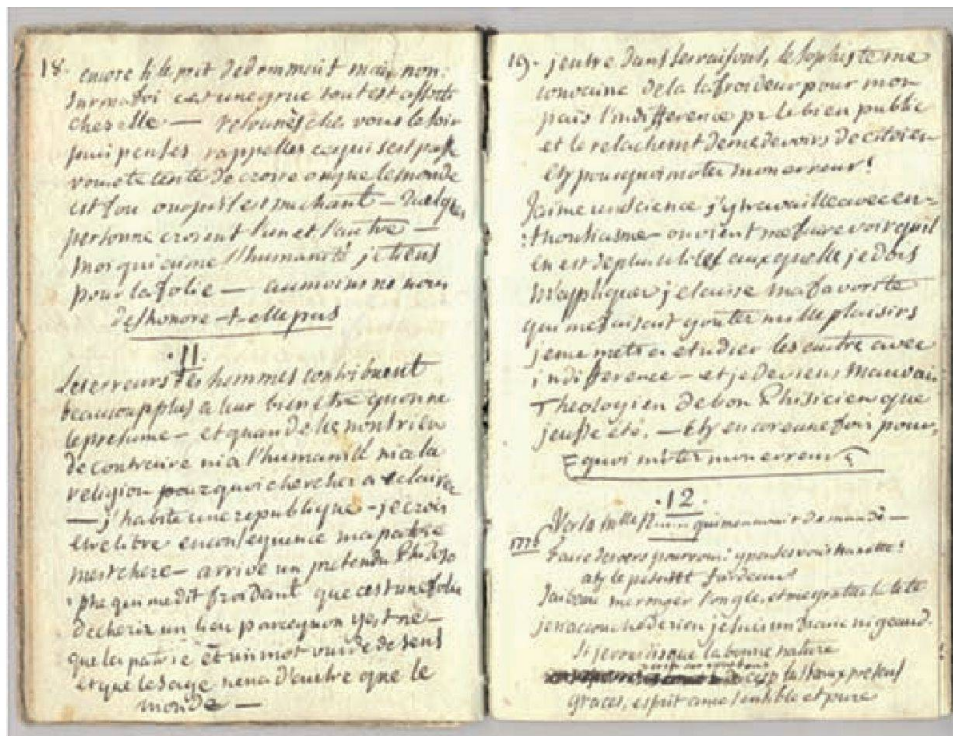 18.
encore si l'esprit dedommoit mais non:
sur ma foi c'est une grue tout est affecté
chez elle — retournés chez vous le soir
puis pensés rappellés ce qui s'est passé
vous ete tenté de croire ou que le monde
est fou ou qu'il est mechant — quelques
personne croient l'un et l'autre —
moi qui aime l'humanité je tiens
pour la folie — au moins ne nous
deshonore-t-elle pas
.11.
Les erreurs des hommes contribuent
beaucoup plus a leur bien etre qu'on ne
le presume — et quand elles n'ont rien
de contraire ni a l'humanité ni a la
religion pourquoi chercher a eclairer
— j'habite une republique — je crois
etre libre en consequence ma patrie
m'est chere — arrive un pretendu Philoso
phe qui me dit froidemt que c'est une folie
de cherir un lieu parcequon y est né —
que la patrie est un mot vuide de sens
et que le sage n'en a d'autre que le
monde —
19. j'entre dans ses raisons, le sophiste me
convainc de la la froideur pour mon
païs l'indifference pr le bien public
et le relachemt de mes devoirs de citoien
Eh pourquoi m'oter mon erreur!
J'aime une science j'y travaille avec en-
:thousiasme — on vient me faire voir qu'il
en est de plus utiles auxquelle je dois
m'appliquer je laisse ma favorite
qui me faisait gouter mille plaisirs
je me mets a etudier les autre avec
indifference — et je deviens mauvais
Theologien de bon Phisicien que
jeusse été. — Eh encore une fois pour-
quoi m'oter mon erreur
.12.
Vers a Mlle qui m'en avait demandé —
1778
Faire des vers pour vous! y pensés vous Nanette!
ah le pesant fardeau!
J'ai beau me ronger l'ongle, et me gratter la tete
je n'accouche de rien je suis un franc nigaud.
Si je vous dis que la bonne nature
fait ses plus beaux presens
graces, esprit ame sensible et pure